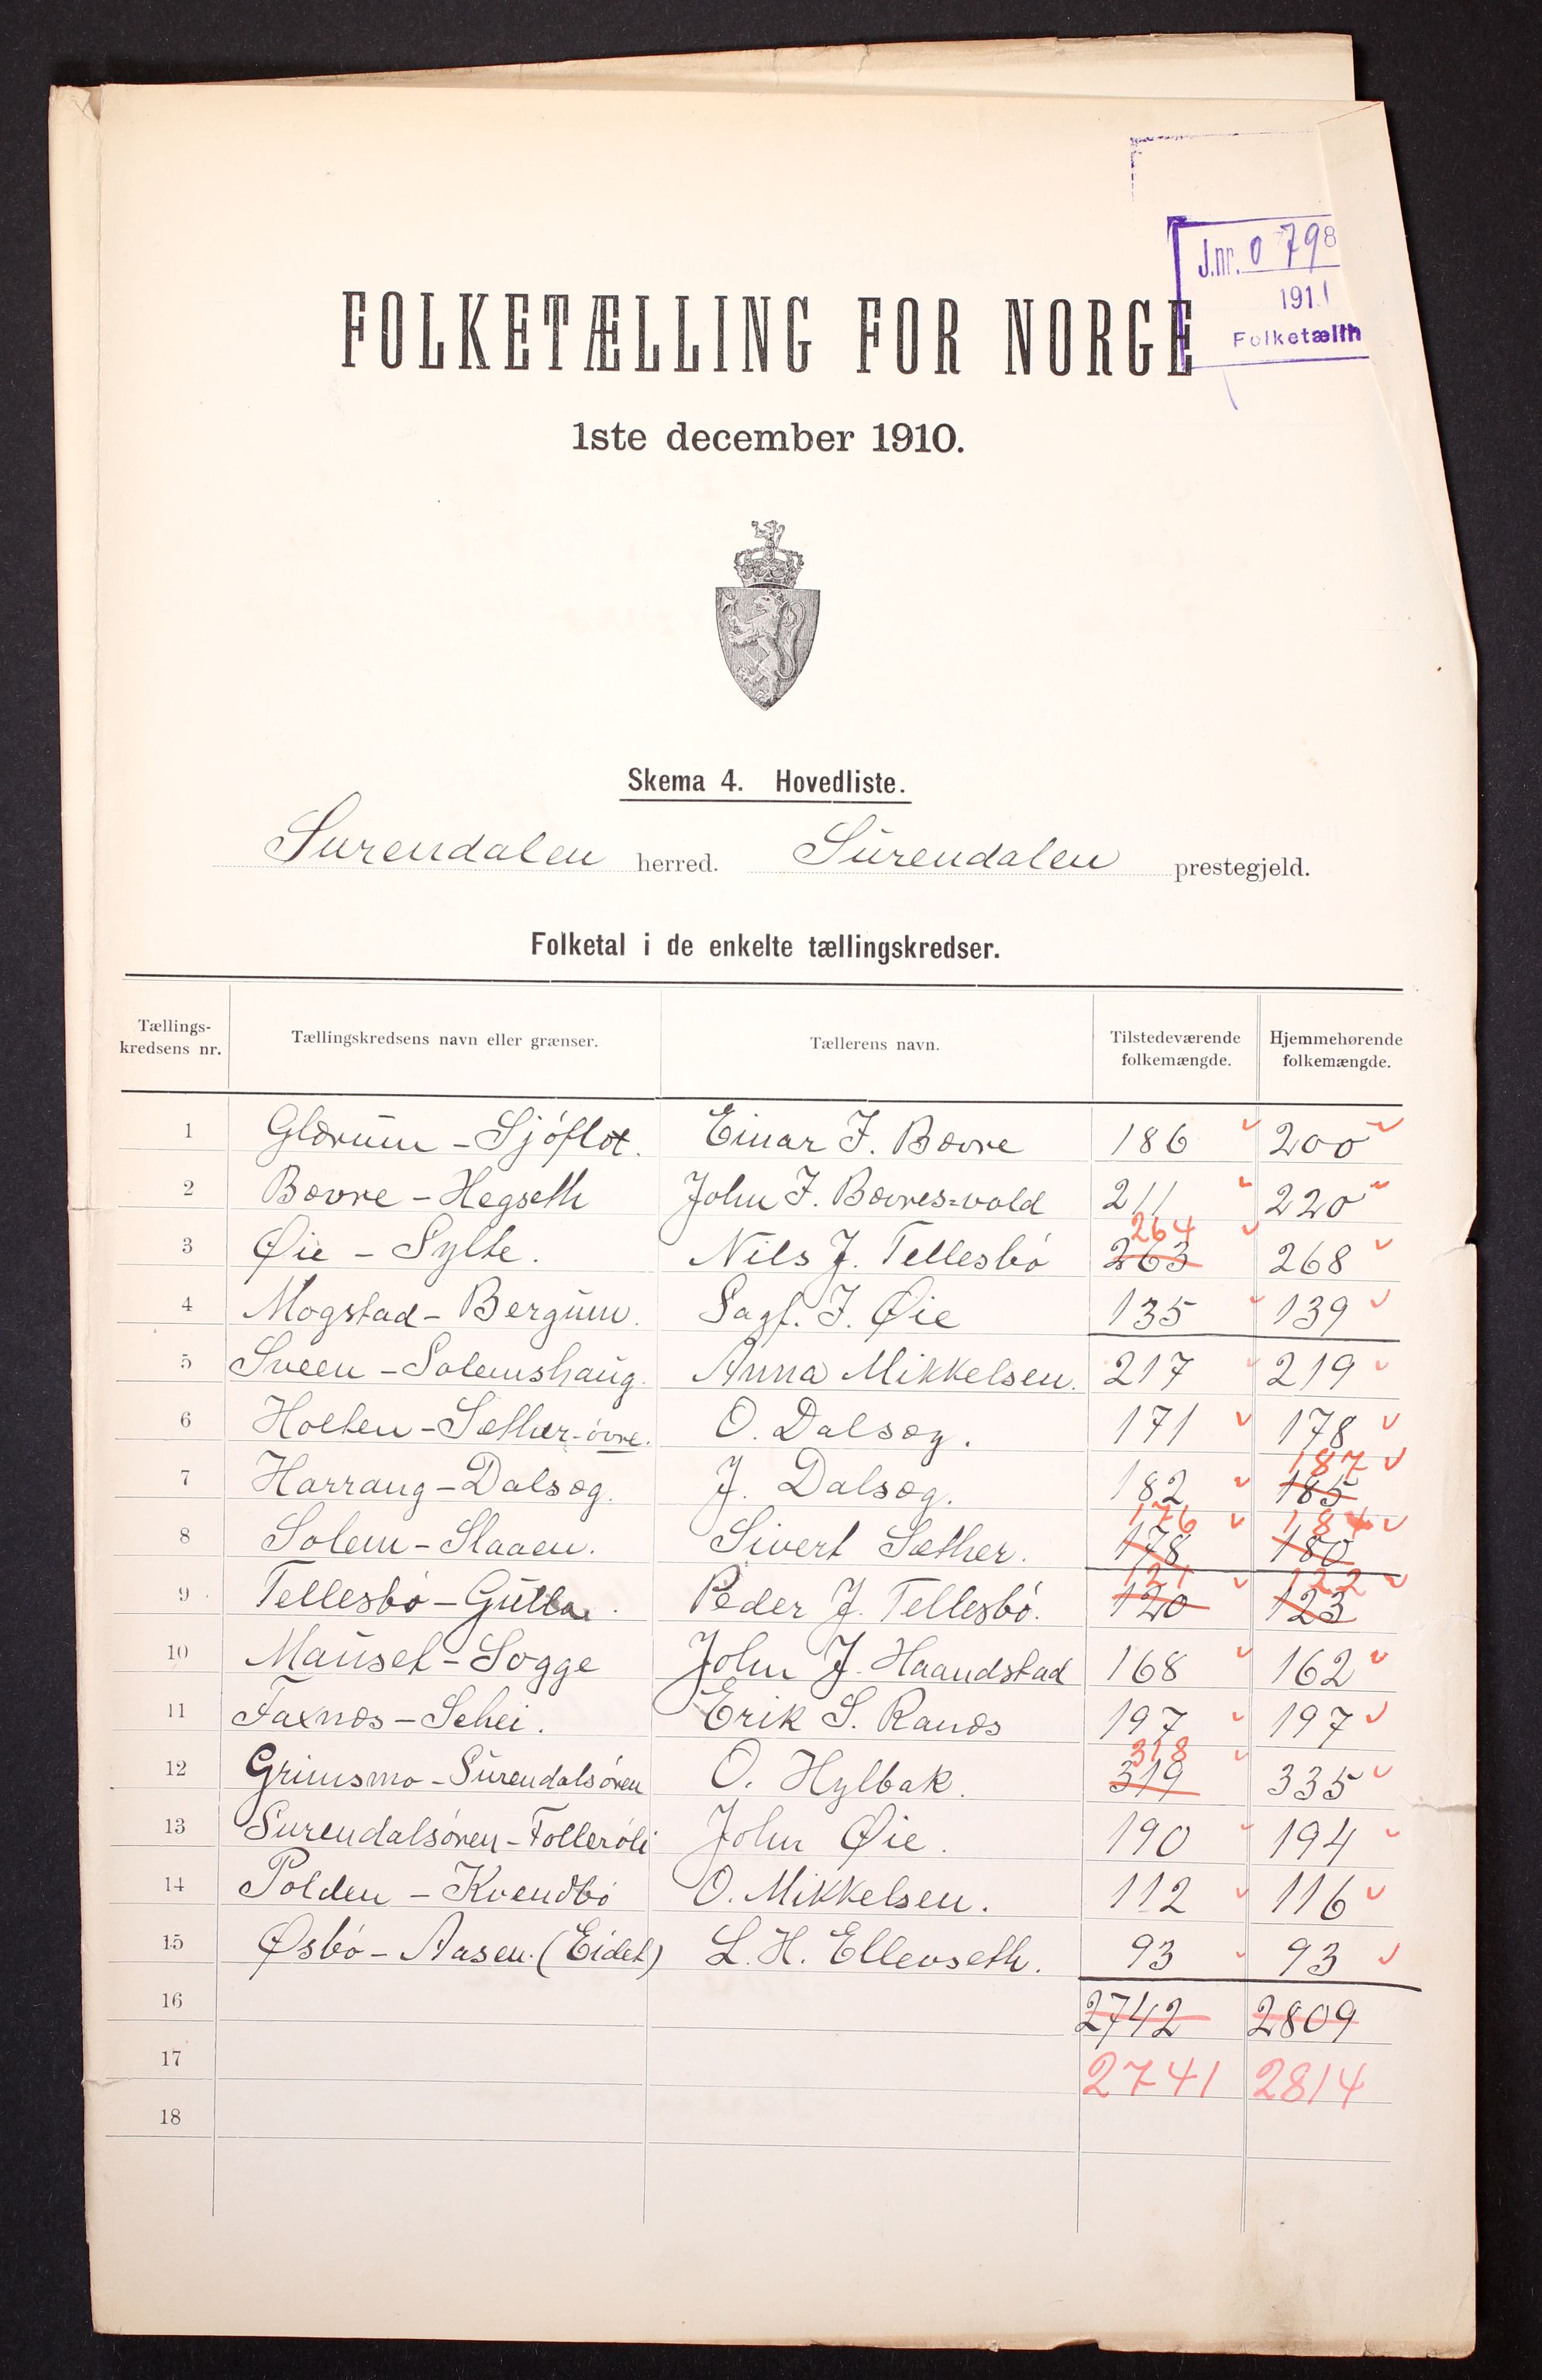 J.nr. 0798
1911
Folketælln
FOLKETÆLLING FOR NORGE
1ste december 1910.
Skema 4. Hovedliste.
Surendalen herred. Surendalen prestegjeld.
Folketal i de enkelte tællingskredser.
Tællings-kredsens nr. Tællingskredsens navn eller grænser. Tællerens navn. Tilstedeværende folkemængde. Hjemmehørende folkemængde.
1 Glærum - Sjøflot. Einar J. Bævre 186 200
2 Bævre - Hegseth John J. Bævres-vold 211 220
3 Øie - Sylte. Nils J. Tellesbø 263 264 268
4 Mogstad - Bergum. J. Øie 135 139
5 Sveen - Solemshaug. Anna Mikkelsen. 217 219
6 Holten - Sæther-øvre. O. Dalsæg. 171 178
7 Harrang - Dalsæg. J. Dalsæg. 182 185 187
8 Solem - Slaaen. Sivert Sæther. 178 176 180 184
9 Tellesbø - Gulla. Peder J. Tellesbø. 120 121 123 122
10 Mauset - Sogge John J. Haandstad 168 162
11 Faxnæs - Schei. Erik S. Ranæs 197 197
12 Grimsmo - Surendalsøren O. Hylbak. 319 318 335
13 Surendalsøren - Tollerøli John Øie. 190 194
14 Polden - Kvendbø O. Mikkelsen. 112 116
15 Øsbø - Aasen. (Eidet) L. H. Ellevseth. 93 93
16 2742 2809
17 2741 2814
18